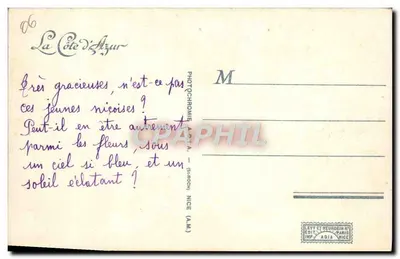 06
La Côte d'Azur
Très gracieuses, n'est-ce pas,
ces jeunes niçoises ?
Peut-il en être autrement
parmi les fleurs, sous
un ciel si bleu, et un
soleil éclatant ?
NICE (A.M.)
M
CPARPHIL